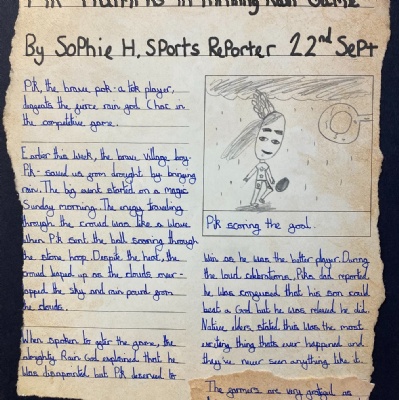 By Sophie H, Sports Reporter 22nd Sept
Pik, the brave pok-a-tok player,
the fierce rain god. Chac in
the competitive game.
Earlier this week, the brave village boy-
Pik - saved us from drought by bringing
rain. The big event started on a magic
Sunday morning. The energy traveling
through the crowd was like a wave
when Pik sent the ball soaring through
the stone hoop. Despite the heat, the
crowd leaped up as the clouds over-
lapped the sky and rain pound from
the clouds.
When spoken to after the game, the
almighty Rain God explained that he
was disapointed but Pik deserved to
Pik scoring the goal.
Win as he was the better player. During
the loud celebrations, Piks dad reported
he was confused that his son could
beat a God but he was relived he did.
Native elders, stated this was the most
exciting thing thats ever happened and
they've never seen anything like it.
The farmers are very grateful as